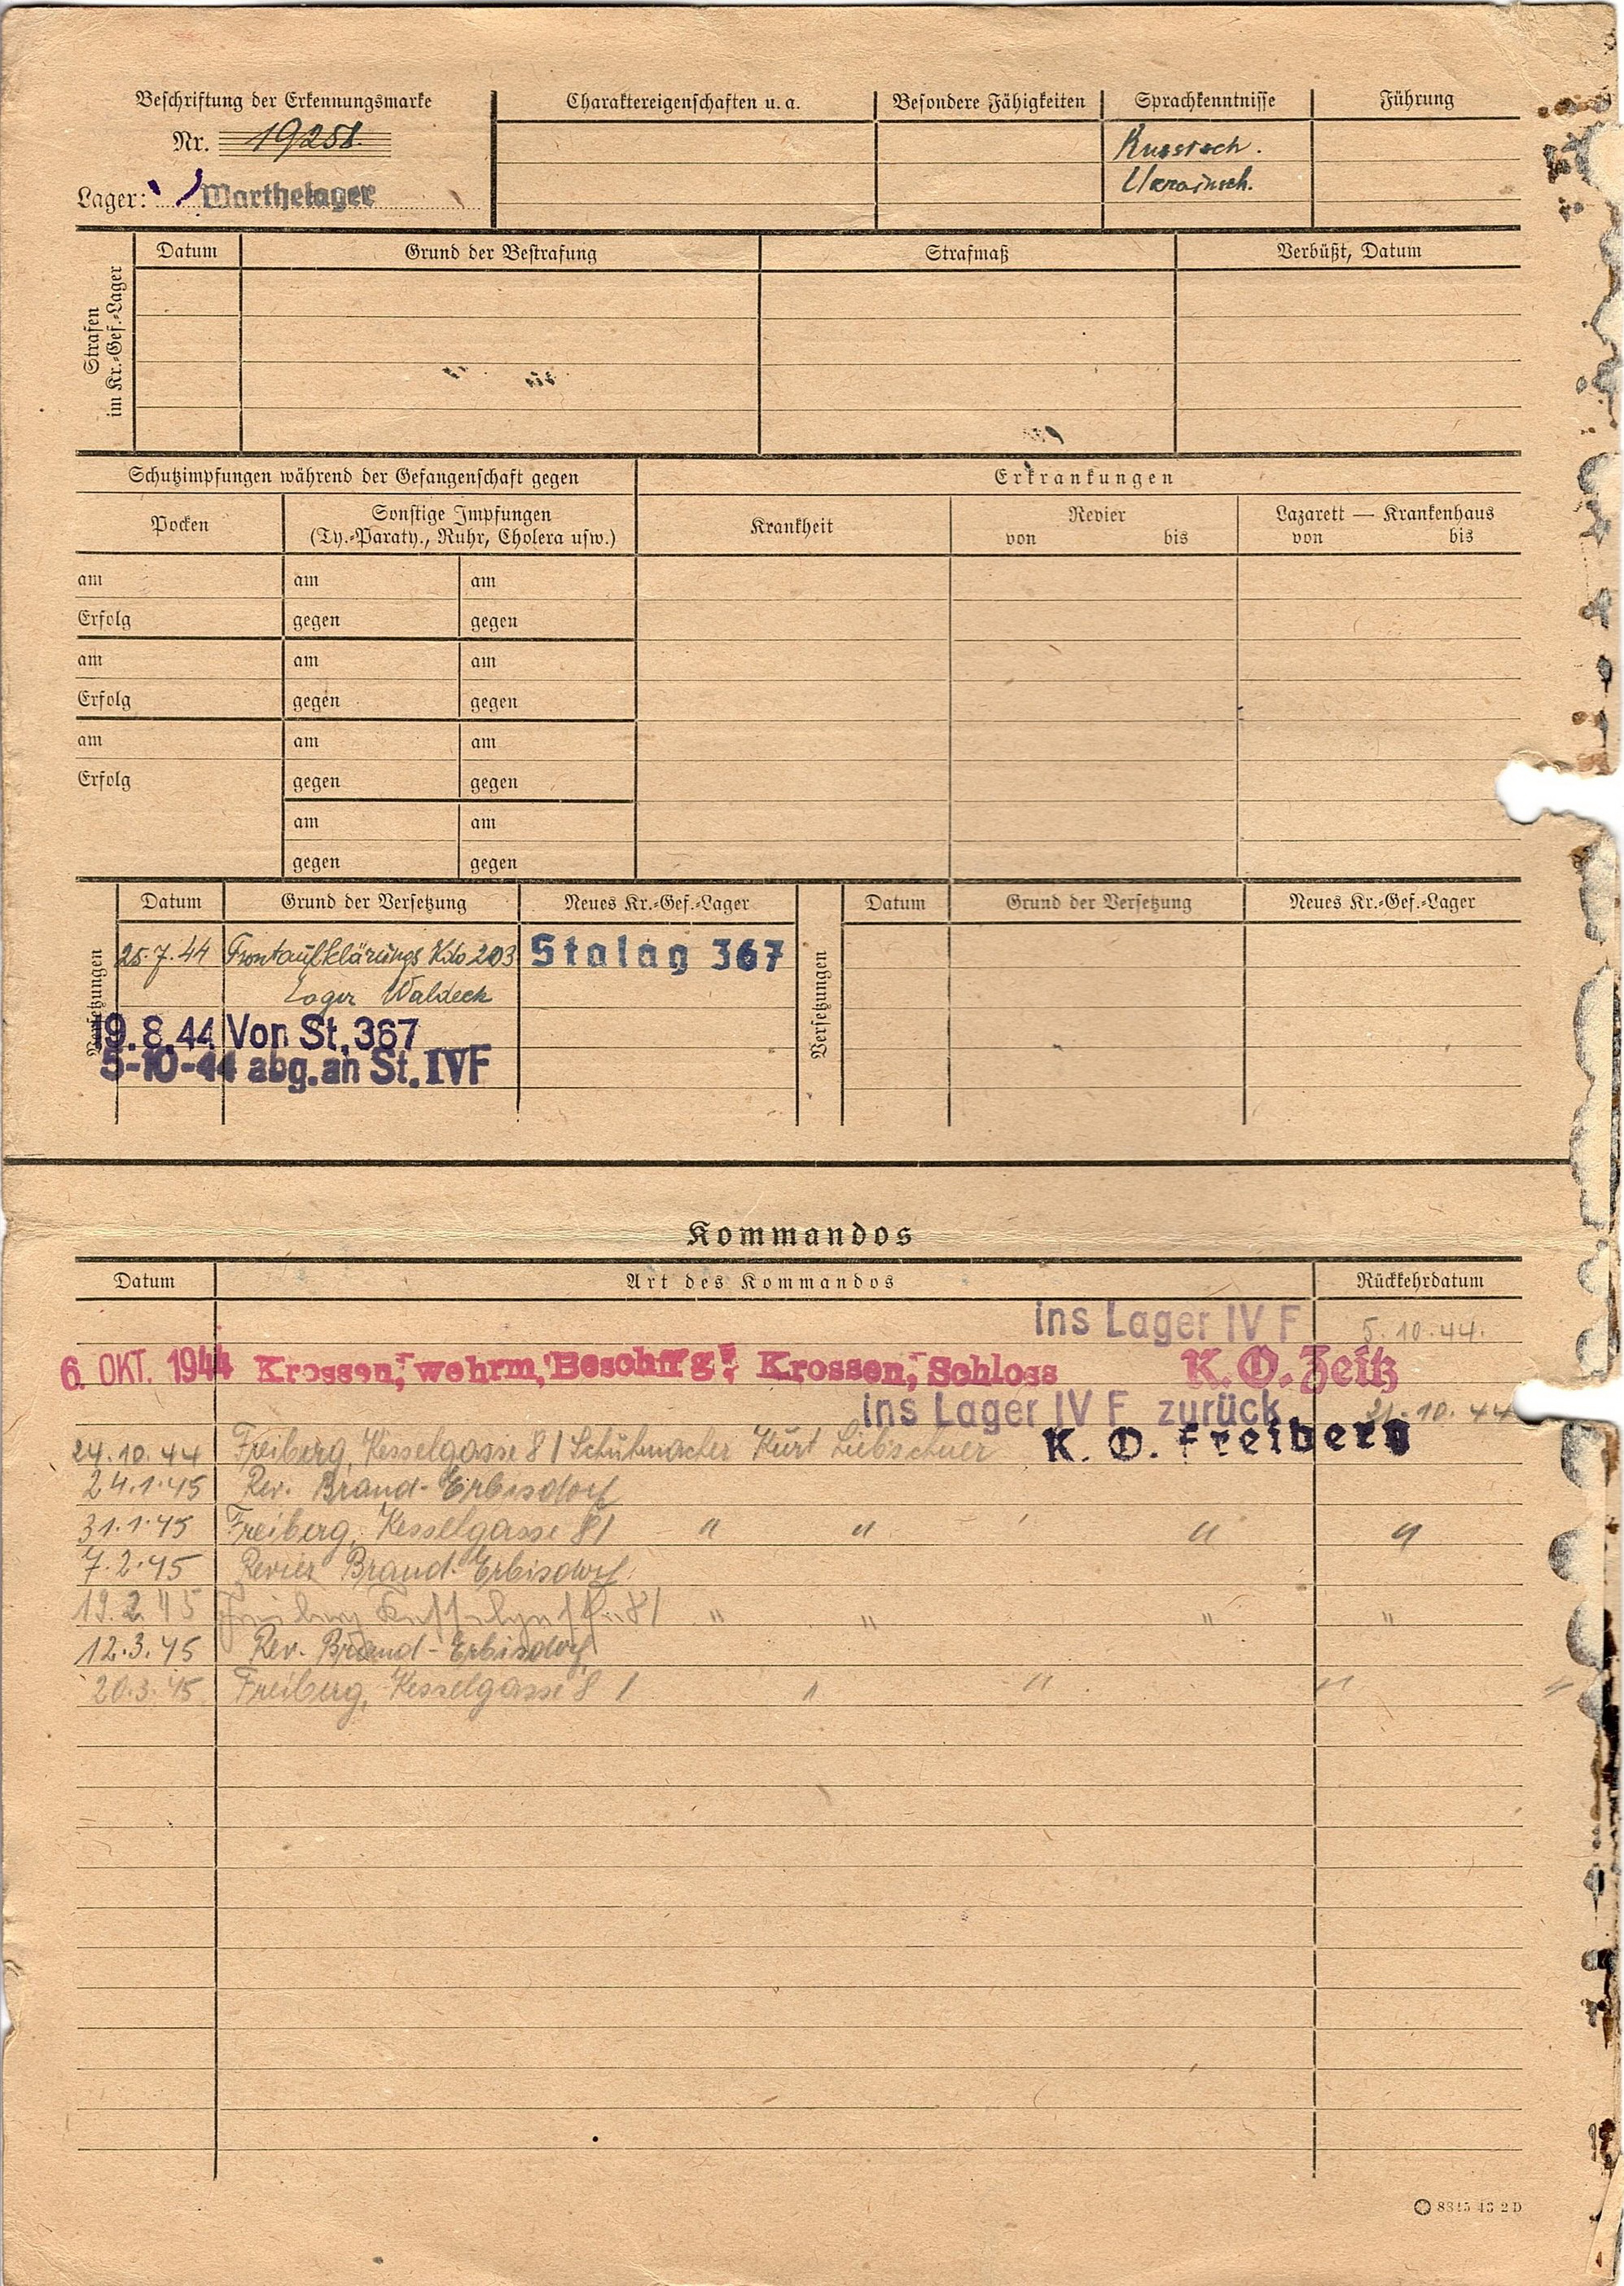 Beschriftung der Erkennungsmarke
Nr. 19258.
Lager: Warthelager
Charaktereigenschaften u. a.
Besondere Fähigkeiten
Sprachkenntnisse
Russisch.
Ukrainisch.
Führung
Strafen
im Kr.-Gef.-Lager
Datum Grund der Bestrafung Strafmaß Verbüßt, Datum
Schutzimpfungen während der Gefangenschaft gegen
Erkrankungen
Pocken
Sonstige Impfungen
(Ty.-Paraty., Ruhr, Cholera usw.)
Krankheit
Revier
von bis
Lazarett — Krankenhaus
von bis
am am am
Erfolg gegen gegen
am am am
Erfolg gegen gegen
am am am
Erfolg gegen gegen
am am
gegen gegen
Versetzungen
Datum Grund der Versetzung Neues Kr.-Gef.-Lager
25.7.44 Frontaufklärungs Kdo 203 Stalag 367
Lager Waldeck
19.8.44 Von St. 367
5-10-44 abg. an St. IVF
Versetzungen
Datum Grund der Versetzung Neues Kr.-Gef.-Lager
Kommandos
Datum Art des Kommandos Rückkehrdatum
ins Lager IV F 5.10.44.
6. OKT. 1944 Krossen, wehrm, Krossen, Schloss K. O. Zeitz
ins Lager IV F zurück 21.10.44
24.10.44 Freiberg, Kesselgasse 81 Schuhmacher Kurt Liebscher K. O. Freiberg
24.1.45 Rev. Brand-Erbisdorf
31.1.45 Freiberg, Kesselgasse 81 " " " "
7.2.45 Revier Brand-Erbisdorf
19.2.45 Freiberg Kesselgasse 81 " " " "
12.3.45 Rev. Brand-Erbisdorf
20.3.45 Freiberg, Kesselgasse 81 " " " "
8315 43 2 D